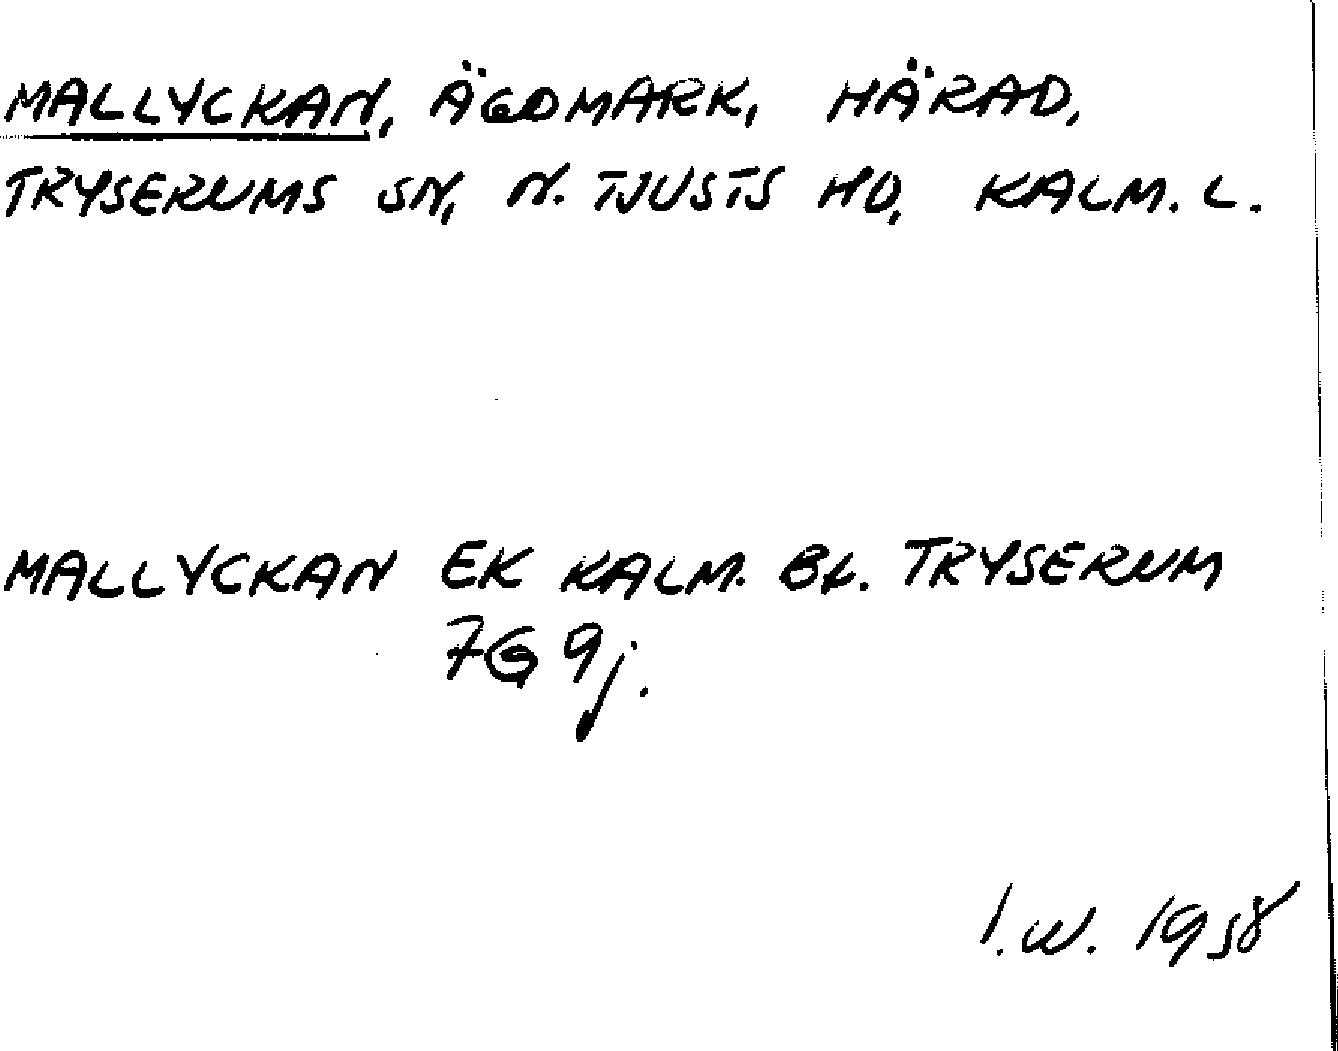 MALLYCKAN, ÄGOMARK, HÄRAD,
TRYSERUMS SN, N. TJUSTS HD, KALM. L.
MALLYCKAN EK KALM. BL. TRYSERUM
7G 9j.
I.W. 1958